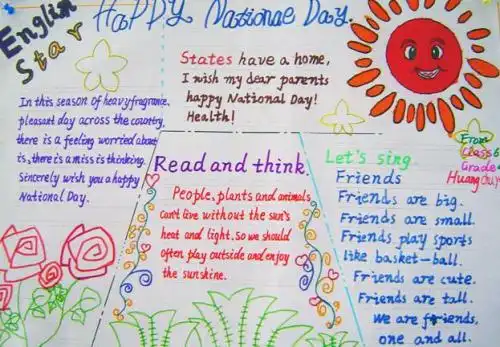 English Star
Happy National Day.
States have a home,
I wish my dear parents
happy National Day!
Health!
In this season of heavy fragrance,
pleasant day across the country,
there is a feeling worried about
is, there is a miss is thinking.
Sincerely wish you a happy
National Day.
Read and think.
People, plants and animals
can't live without the sun's
heat and light. so we should
often play outside and enjoy
the sunshine.
Let's sing
Friends
Friends are big.
Friends are small.
Friends play sports
like basket-ball.
Friends are cute.
Friends are tall.
We are friends,
one and all.
From
Class 6
Grade
Huang